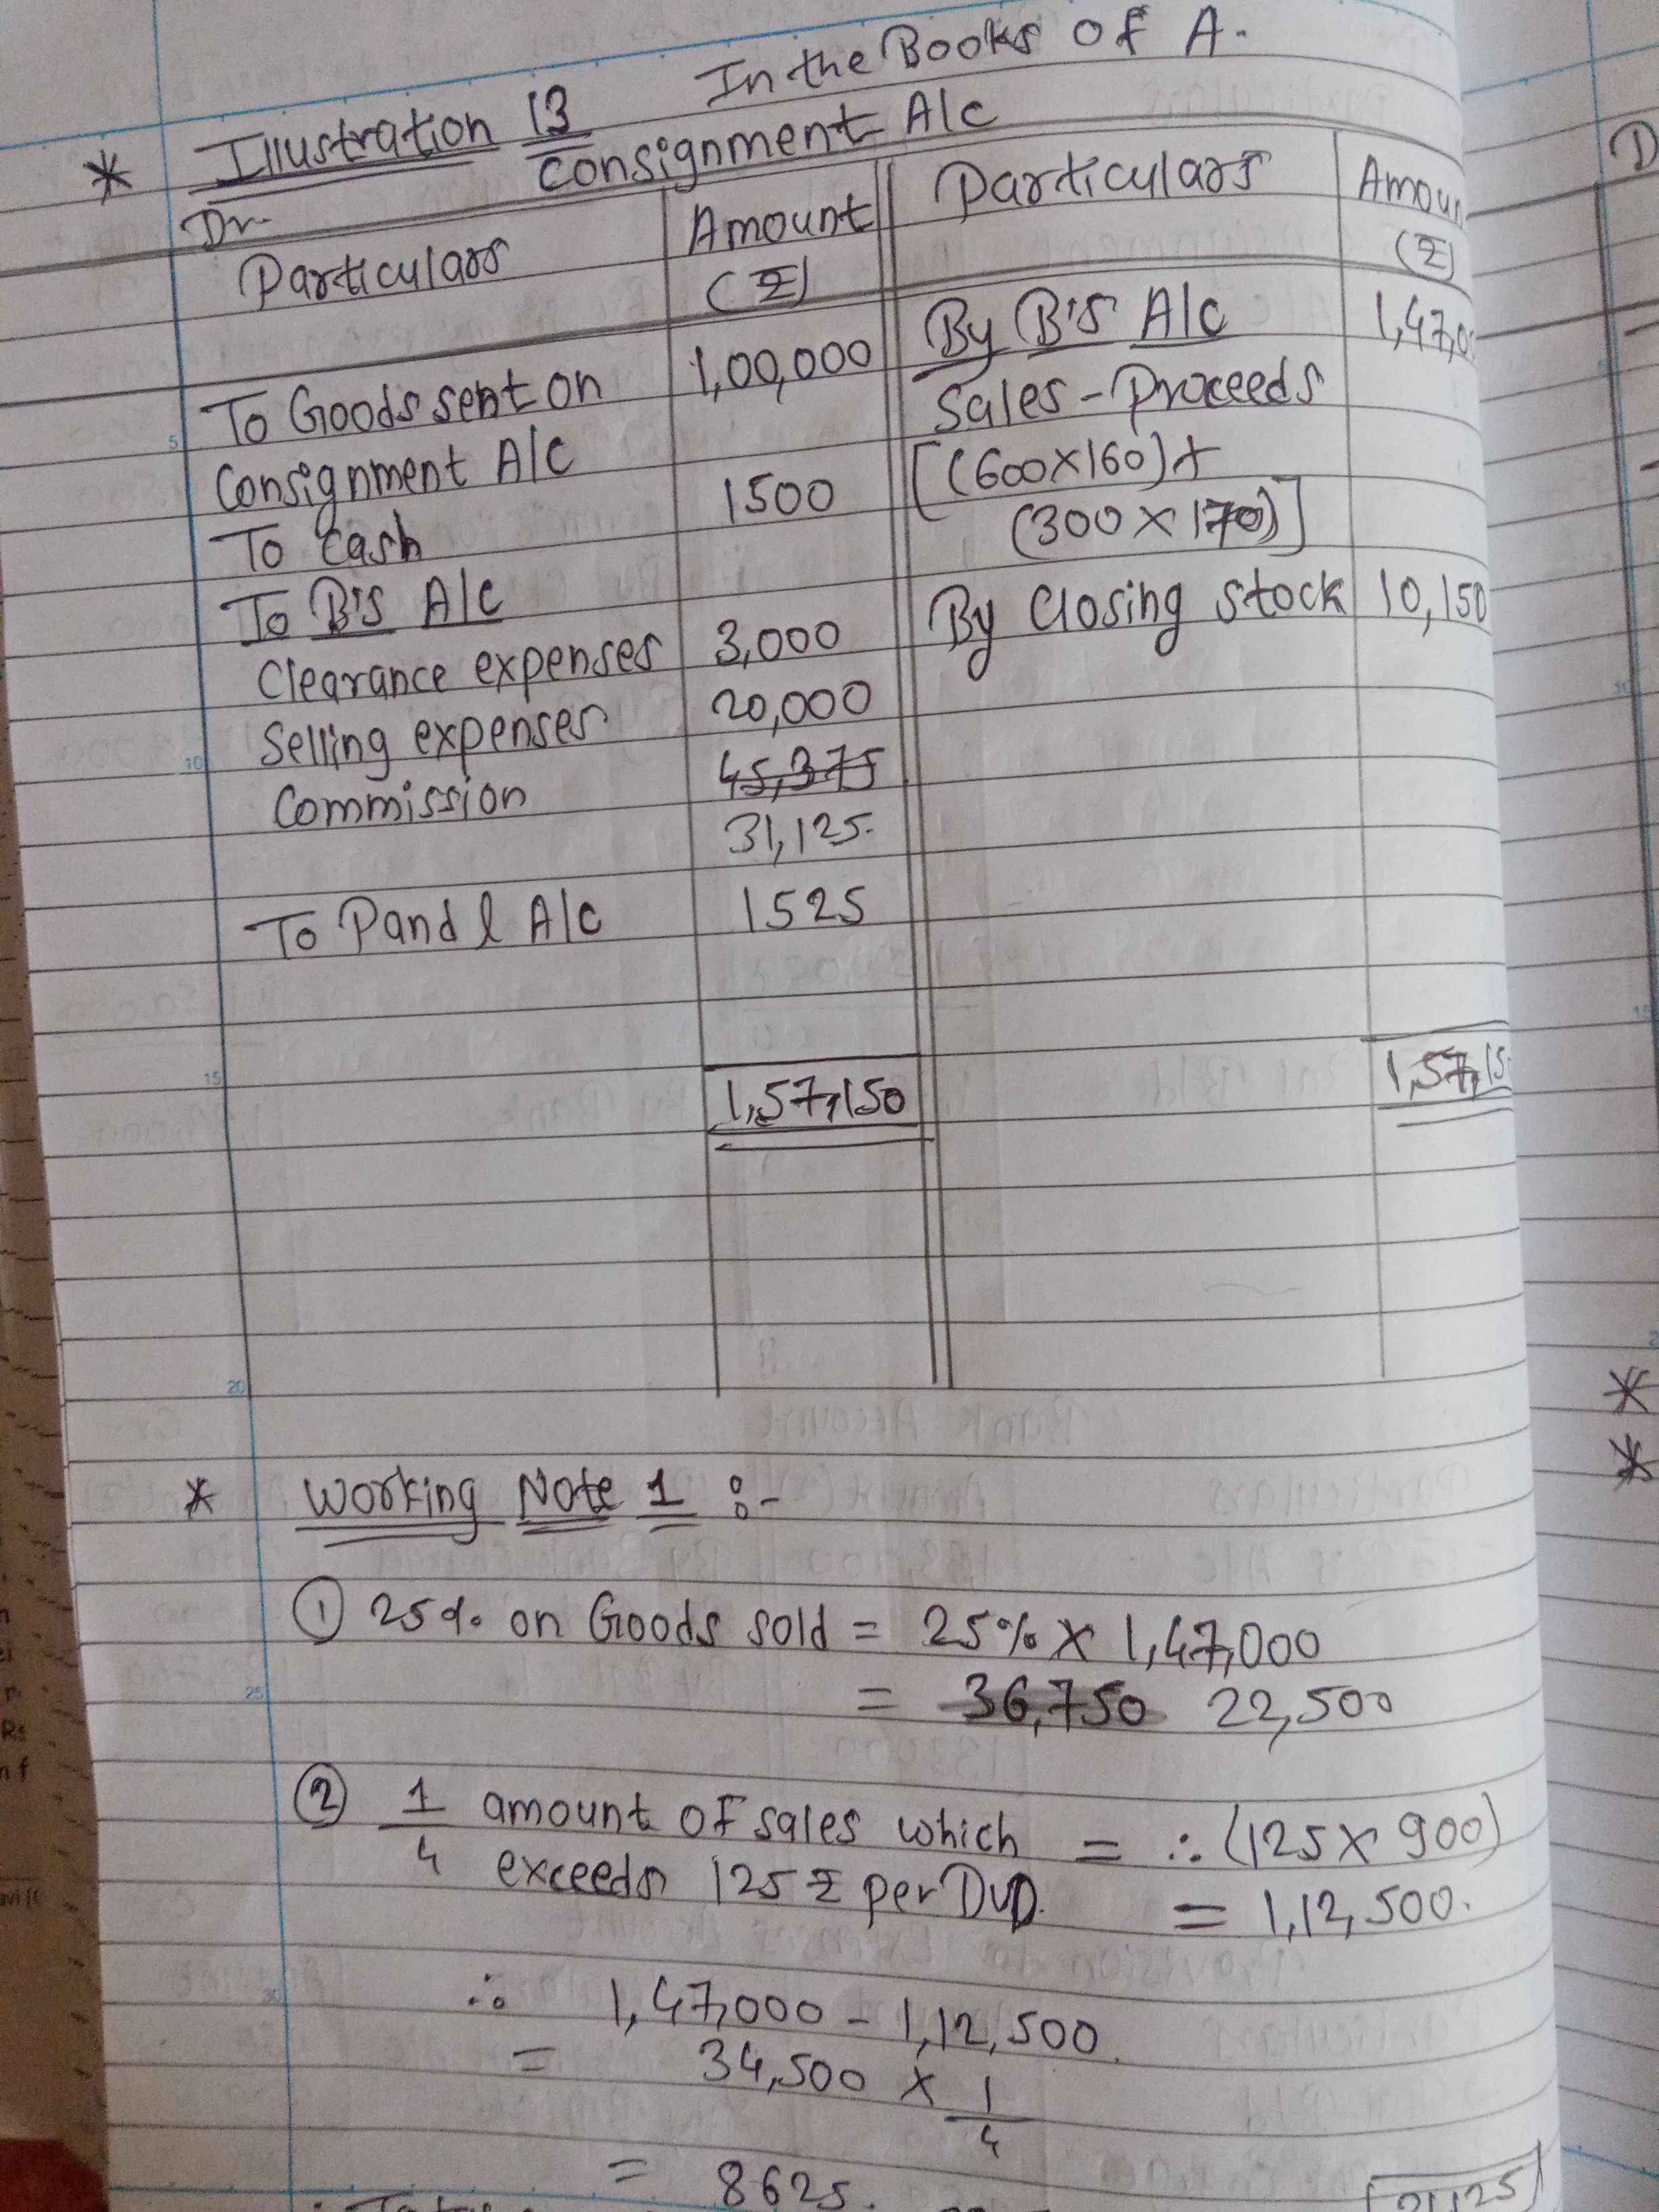 In the Books Of A.
* Illustration 13
Consignment A/c
Dr.
Particulars | Amount (₹) | Particulars | Amoun (₹)
To Goods sent on | 1,00,000 | By B's A/c | 1,47,0
Consignment A/c | | Sales - Proceeds
To Cash | 1500 | [(600×160)+
(300 × 170)]
To B's A/c | | By Closing stock | 10,150
Clearance expenses | 3,000
Selling expenses | 20,000
Commission | 45,375
31,125.
To P and l A/c | 1525
1,57,150 | 1,57,15
* Working Note 1 :-
① 25% on Goods sold = 25% × 1,47,000
= 36,750 22,500
② 1/4 amount of sales which = ∴ (125 × 900)
exceeds 125 ₹ per DVD. = 1,12,500.
∴ 1,47,000 - 1,12,500.
= 34,500 × 1/4
= 8625.
D
5
10
15
20
25
30
*
*
Rs